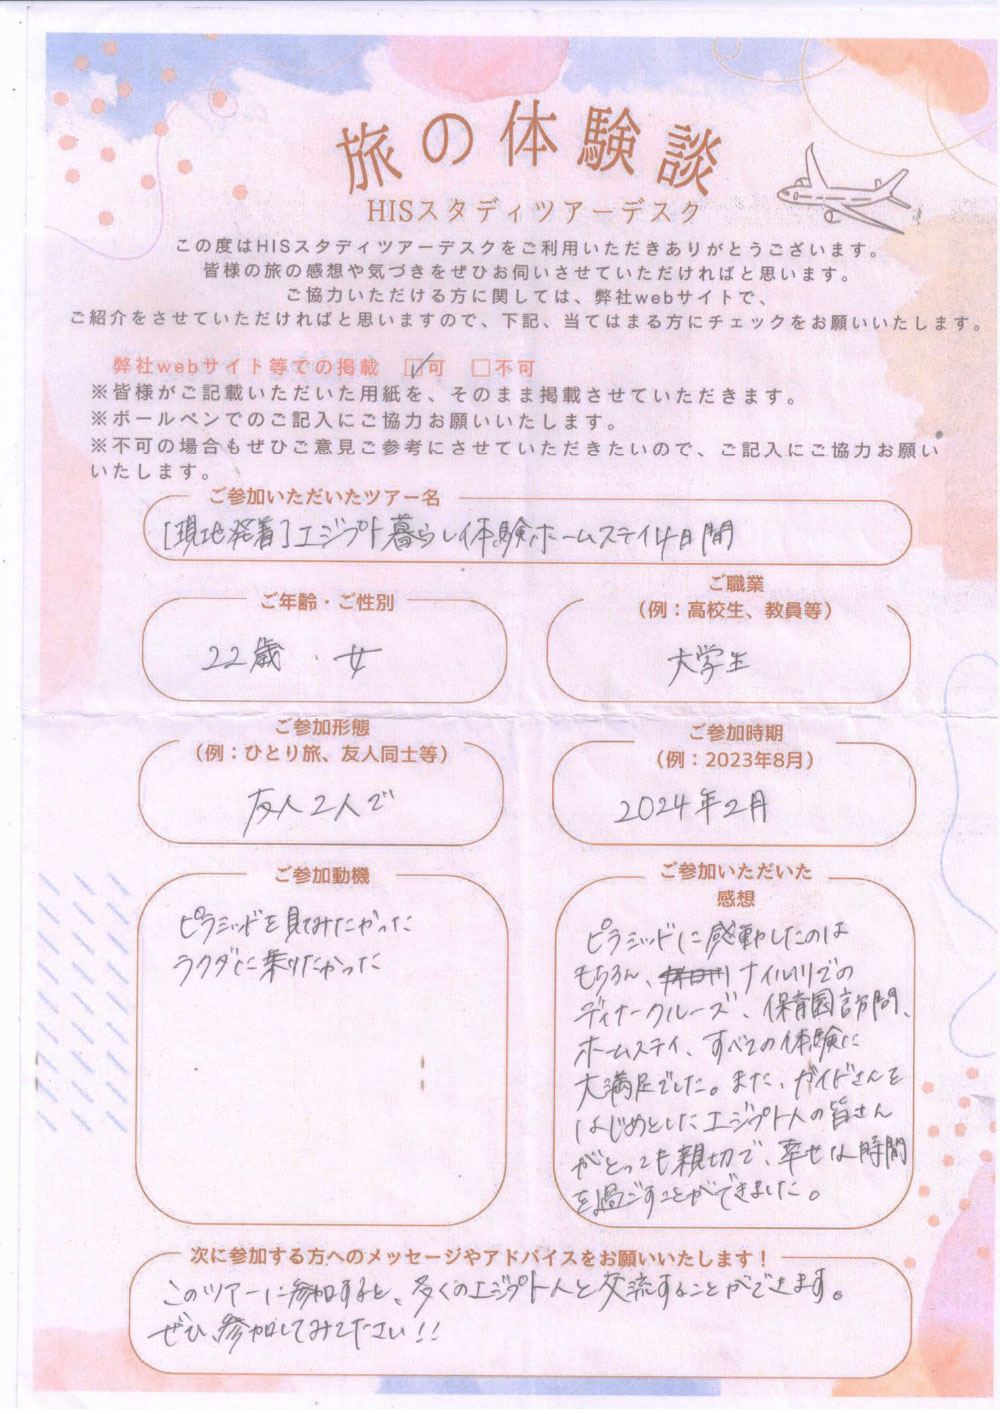 旅の体験談
HISスタディツアーデスク
この度はHISスタディツアーデスクをご利用いただきありがとうございます。
皆様の旅の感想や気づきをぜひお伺いさせていただければと思います。
ご協力いただける方に関しては、弊社webサイトで、
ご紹介をさせていただければと思いますので、下記、当てはまる方にチェックをお願いいたします。
弊社webサイト等での掲載 ☑可 □不可
※皆様がご記載いただいた用紙を、そのまま掲載させていただきます。
※ボールペンでのご記入にご協力お願いいたします。
※不可の場合もぜひご意見ご参考にさせていただきたいので、ご記入にご協力お願い
いたします。
ご参加いただいたツアー名
[現地発着]エジプト暮らし体験ホームステイ4日間
ご年齢・ご性別
22歳・女
ご職業
（例：高校生、教員等）
大学生
ご参加形態
（例：ひとり旅、友人同士等）
友人2人で
ご参加時期
（例：2023年8月）
2024年2月
ご参加動機
ピラミッドを見てみたかった
ラクダに乗りたかった
ご参加いただいた
感想
ピラミッドに感動したのは
もちろん、ナイル川での
ディナークルーズ、保育園訪問、
ホームステイ、すべての体験に
大満足でした。また、ガイドさんを
はじめとしたエジプト人の皆さん
がとっても親切で、幸せな時間
を過ごすことができました。
次に参加する方へのメッセージやアドバイスをお願いいたします！
このツアーに参加すると、多くのエジプト人と交流することができます。
ぜひ、参加してみてださい!!